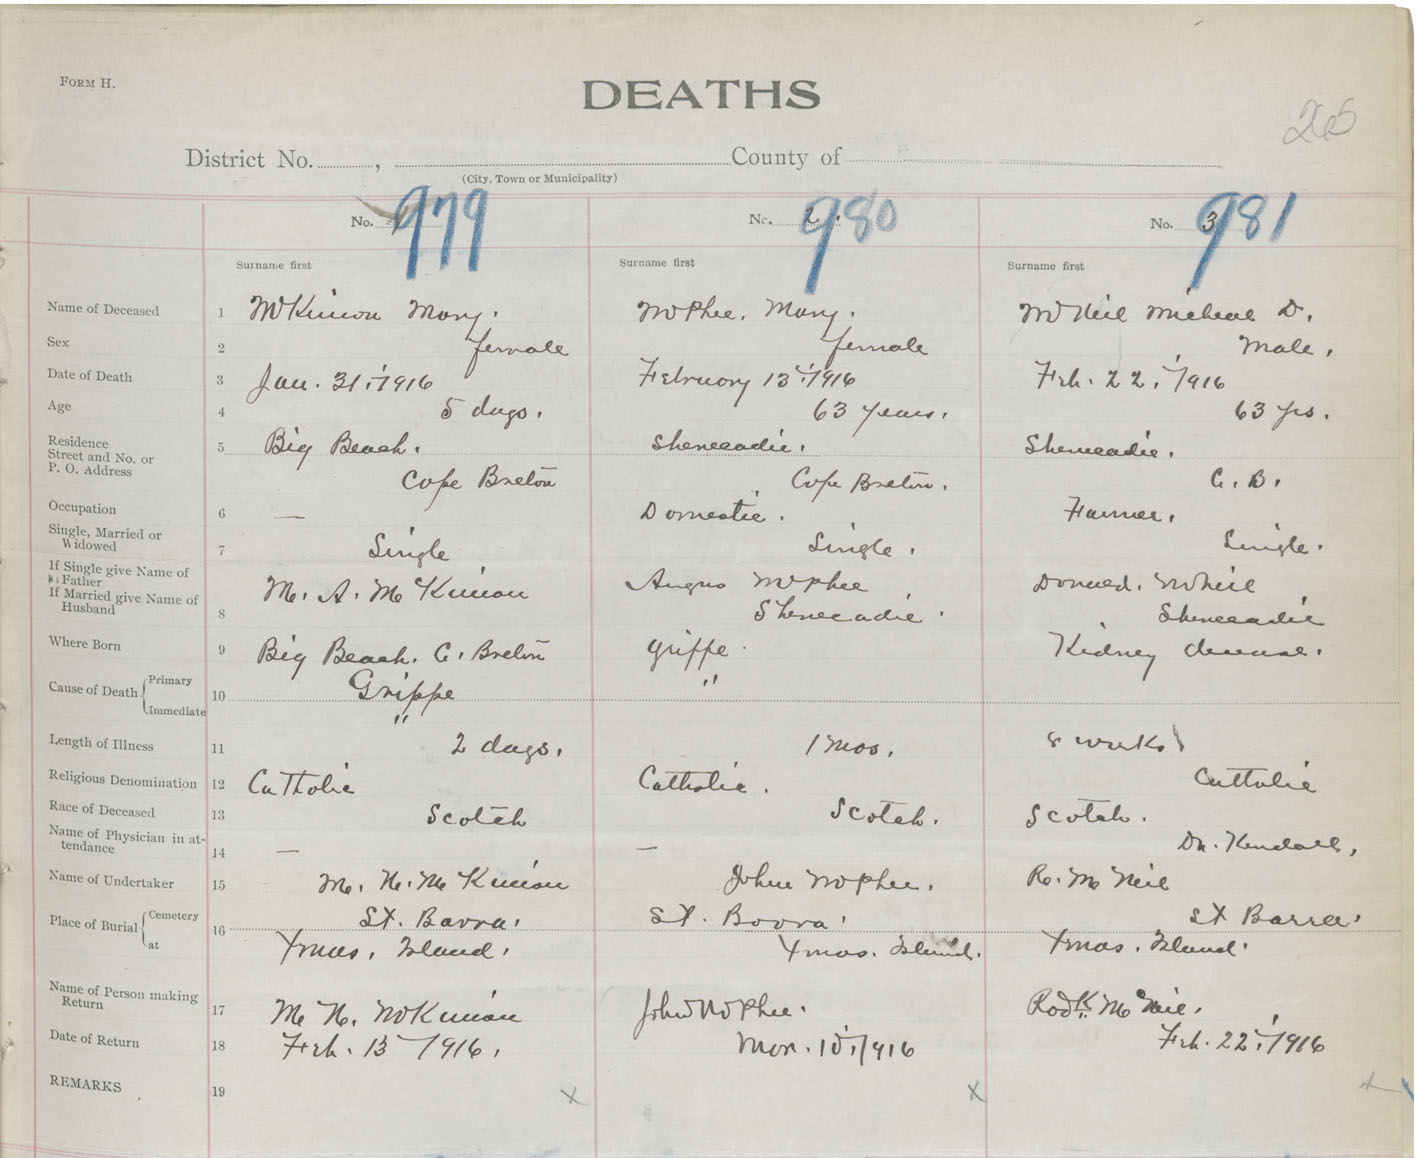 FORM H.
DEATHS
265
District No. , County of
(City, Town or Municipality)
No. 1 979 No. 2 980 No. 3 981
Surname first Surname first Surname first
Name of Deceased 1 McKinnon Mary. McPhee, Mary. McNeil Micheal D.
Sex 2 female female Male.
Date of Death 3 Jan. 31, 1916 February 13, 1916 Feb. 22, 1916
Age 4 5 days. 63 years. 63 yrs.
Residence
Street and No. or 5 Big Beach. Shenecadie. Shenecadie.
P. O. Address Cape Breton Cape Breton. C. B.
Occupation 6 — Domestic. Farmer.
Single, Married or
Widowed 7 Single Single. Single.
If Single give Name of
Father M. A. McKinion Angus McPhee Donald. McNeil
If Married give Name of
Husband 8 Shenecadie. Shenecadie
Where Born 9 Big Beach. C. Breton Grippe. Kidney disease.
Cause of Death Primary 10 Grippe "
Immediate "
Length of Illness 11 2 days. 1 mos. 8 weeks
Religious Denomination 12 Catholic Catholic. Catholic
Race of Deceased 13 Scotch Scotch. Scotch.
Name of Physician in at-
tendance 14 — — Dr. Kendall,
Name of Undertaker 15 M. N. McKinion John McPhee. R. McNeil
Place of Burial Cemetery 16 St. Barra. St. Barra. St Barra.
at Xmas. Island. Xmas. Island. Xmas. Island.
Name of Person making
Return 17 M N. McKinion John McPhee. Rodk. McNeil.
Date of Return 18 Feb. 13 1916. Mar. 10, 1916 Feb. 22, 1916
REMARKS 19 x x x